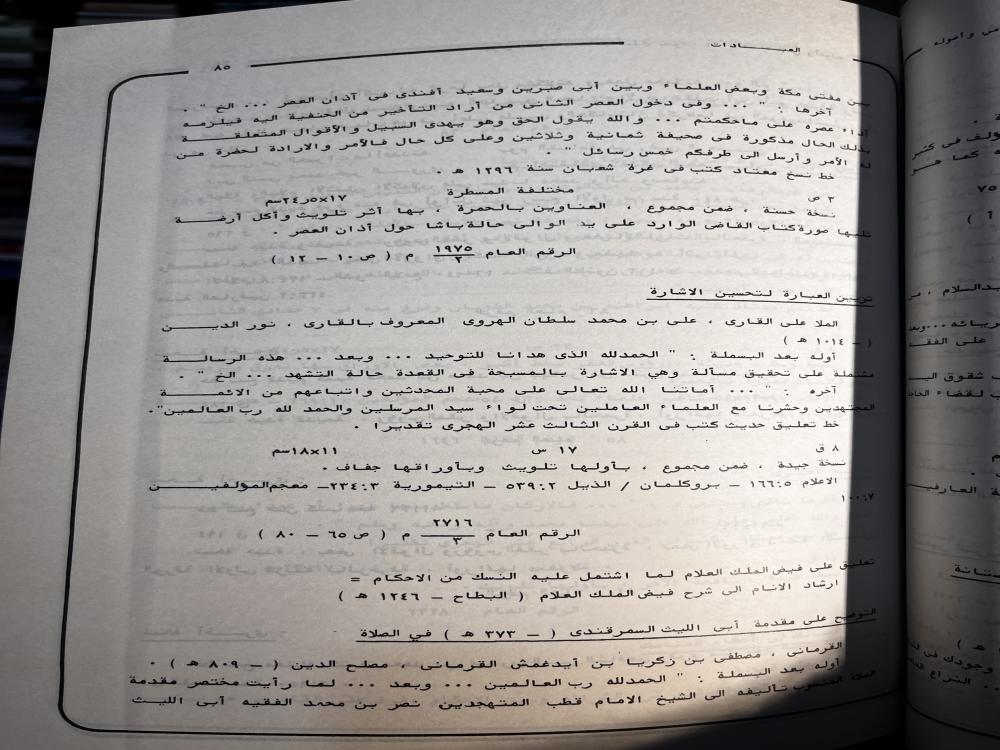 العبــــــــادات
٨٥
بين مفتى مكة وبعض العلماء وبين أبى صبرين وسعيد أفندى فى آذان العصر ... الخ " .
آخرها : " ... وفى دخول العصر الثانى من أراد التأخير من الحنفية اليه فيلزمه
أداء عصره على ماحكمتم ... والله يقول الحق وهو يهدى السبيل والأقوال المتعلقــــة
بذلك الحال مذكورة فى صحيفة ثمانية وثلاثين وعلى كل حال فالأمر والارادة لحضرة مــن
له الأمر وأرسل الى طرفكم خمس رسائل " .
خط نسخ معتاد كتب فى غرة شعبان سنة ١٢٩٦ هـ .
٣ ص مختلفة المسطرة ١٧×٢٤٫٥سم
نسخة حسنة ، ضمن مجموع ، العناوين بالحمرة ، بها أثر تلويث وأكل أرضــــة
تليها صورة كتاب القاضى الوارد على يد الوالى حالة باشا حول آذان العصر .
الرقم العام ١٩٧٥/٢ م ( ص ١٠ – ١٢ )
تزيين العبارة لتحسين الاشارة
الملا على القارى ، على بن محمد سلطان الهروى المعروف بالقارى ، نور الديــــن
( – ١٠١٤ هـ )
أوله بعد البسملة : " الحمدلله الذى هدانا للتوحيد ... وبعد ... هذه الرسالــــة
مشتملة على تحقيق مسألة وهي الاشارة بالمسبحة فى القعدة حالة التشهد ... الخ " .
آخره : " ... أماتنا الله تعالى على محبة المحدثين واتباعهم من الائمــــــة
المجتهدين وحشرنا مع العلماء العاملين تحت لواء سيد المرسلين والحمد لله رب العالمين".
خط تعليق حديث كتب فى القرن الثالث عشر الهجرى تقديرا .
٨ ق ١٧ س ١١×١٨سم
نسخة جيدة ، ضمن مجموع ، بأولها تلويث وبأوراقها جفاف .
الاعلام ١٦٦:٥ – بروكلمان / الذيل ٥٣٩:٢ – التيمورية ٢٣٤:٣– معجم المؤلفيــــن
١٠٠:٧
الرقم العام ٢٧١٦/٣ م ( ص ٦٥ – ٨٠ )
تعليق على فيض الملك العلام لما اشتمل عليه النسك من الاحكام =
ارشاد الانام الى شرح فيض الملك العلام ( البطاح – ١٢٤٦ هـ )
التوضيح على مقدمة أبى الليث السمرقندى ( – ٣٧٣ هـ ) في الصلاة
القرمانى ، مصطفى بن زكريا بن آيدغمش القرمانى ، مصلح الدين ( – ٨٠٩ هـ ) .
أوله بعد البسملة : " الحمدلله رب العالمين ... وبعد ... لما رأيت مختصر مقدمة
الصلاة المنسوب تأليفه الى الشيخ الامام قطب المتهجدين نصر بن محمد الفقيه أبى الليث